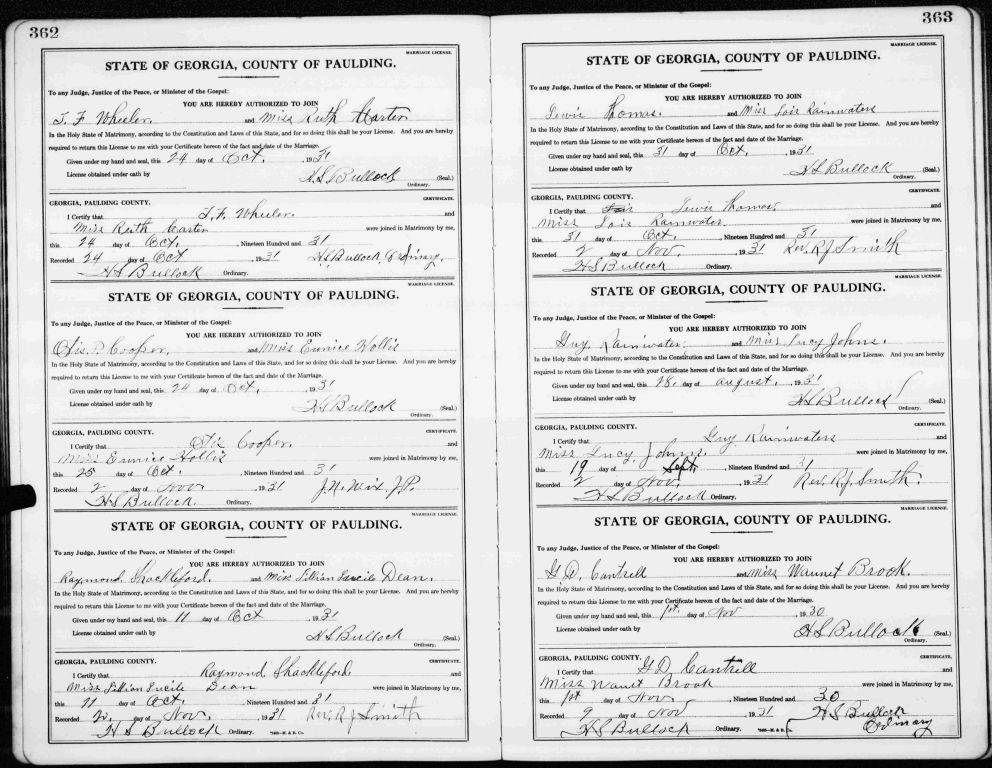 362
MARRIAGE LICENSE.
STATE OF GEORGIA, COUNTY OF PAULDING.
To any Judge, Justice of the Peace, or Minister of the Gospel:
YOU ARE HEREBY AUTHORIZED TO JOIN
J. F. Wheeler. and Miss Ruth Carter
In the Holy State of Matrimony, according to the Constitution and Laws of this State, and for so doing this shall be your License. And you are hereby
required to return this License to me with your Certificate hereon of the fact and date of the Marriage.
Given under my hand and seal, this 24 day of Oct. , 1931
License obtained under oath by H S Bullock (Seal.)
Ordinary.
GEORGIA, PAULDING COUNTY. CERTIFICATE.
I Certify that J. F. Wheeler. and
Miss Ruth Carter were joined in Matrimony by me,
this 24 day of Oct. , Nineteen Hundred and 31
Recorded 24 day of Oct , 1931 H.S Bullock, Ordinary.
H S Bullock Ordinary.
MARRIAGE LICENSE.
STATE OF GEORGIA, COUNTY OF PAULDING.
To any Judge, Justice of the Peace, or Minister of the Gospel:
YOU ARE HEREBY AUTHORIZED TO JOIN
Otis. P. Cooper, and Miss Eunice Hollis
In the Holy State of Matrimony, according to the Constitution and Laws of this State, and for so doing this shall be your License. And you are hereby
required to return this License to me with your Certificate hereon of the fact and date of the Marriage.
Given under my hand and seal, this 24 day of Oct. , 1931
License obtained under oath by H S Bullock (Seal.)
Ordinary.
GEORGIA, PAULDING COUNTY. CERTIFICATE.
I Certify that Cooper. and
Miss Eunice Hollis were joined in Matrimony by me,
this 25 day of Oct. , Nineteen Hundred and 31
Recorded 2 day of Nov , 1931 J.P.
H S Bullock. Ordinary.
MARRIAGE LICENSE.
STATE OF GEORGIA, COUNTY OF PAULDING.
To any Judge, Justice of the Peace, or Minister of the Gospel:
YOU ARE HEREBY AUTHORIZED TO JOIN
Raymond Shackleford. and Miss Lillian Lucile Dean.
In the Holy State of Matrimony, according to the Constitution and Laws of this State, and for so doing this shall be your License. And you are hereby
required to return this License to me with your Certificate hereon of the fact and date of the Marriage.
Given under my hand and seal, this 11 day of Oct , 1931
License obtained under oath by H S Bullock (Seal.)
Ordinary.
GEORGIA, PAULDING COUNTY. CERTIFICATE.
I Certify that Raymond Shackleford. and
Miss Lillian Lucile Dean were joined in Matrimony by me,
this 11 day of Oct. , Nineteen Hundred and 31
Recorded 2. day of Nov. , 1931 Rev. R J Smith
H S Bullock Ordinary.
363
MARRIAGE LICENSE.
STATE OF GEORGIA, COUNTY OF PAULDING.
To any Judge, Justice of the Peace, or Minister of the Gospel:
YOU ARE HEREBY AUTHORIZED TO JOIN
Lewis Thomas. and Miss Lois Rainwaters
In the Holy State of Matrimony, according to the Constitution and Laws of this State, and for so doing this shall be your License. And you are hereby
required to return this License to me with your Certificate hereon of the fact and date of the Marriage.
Given under my hand and seal, this 31 day of Oct. , 1931
License obtained under oath by H S Bullock (Seal.)
Ordinary.
GEORGIA, PAULDING COUNTY. CERTIFICATE.
I Certify that Lewis Thomas, and
Miss Lois Rainwater were joined in Matrimony by me,
this 31 day of Oct. , Nineteen Hundred and 31
Recorded 2 day of Nov. , 1931 Rev. R J Smith
H S Bullock Ordinary.
MARRIAGE LICENSE.
STATE OF GEORGIA, COUNTY OF PAULDING.
To any Judge, Justice of the Peace, or Minister of the Gospel:
YOU ARE HEREBY AUTHORIZED TO JOIN
Guy Rainwater. and Miss Lucy Johns.
In the Holy State of Matrimony, according to the Constitution and Laws of this State, and for so doing this shall be your License. And you are hereby
required to return this License to me with your Certificate hereon of the fact and date of the Marriage.
Given under my hand and seal, this 28 day of August. , 1931
License obtained under oath by H S Bullock (Seal.)
Ordinary.
GEORGIA, PAULDING COUNTY. CERTIFICATE.
I Certify that Guy Rainwaters and
Miss Lucy Johns. were joined in Matrimony by me,
this 19 day of Sept. , Nineteen Hundred and 31
Recorded 2 day of Nov. , 1931 Rev. R. J. Smith.
H S Bullock Ordinary.
MARRIAGE LICENSE.
STATE OF GEORGIA, COUNTY OF PAULDING.
To any Judge, Justice of the Peace, or Minister of the Gospel:
YOU ARE HEREBY AUTHORIZED TO JOIN
G. D. Cantrell and Miss Waunet Brook.
In the Holy State of Matrimony, according to the Constitution and Laws of this State, and for so doing this shall be your License. And you are hereby
required to return this License to me with your Certificate hereon of the fact and date of the Marriage.
Given under my hand and seal, this 1st. day of Nov , 1930
License obtained under oath by H S Bullock (Seal.)
Ordinary.
GEORGIA, PAULDING COUNTY. CERTIFICATE.
I Certify that G D. Cantrell and
Miss Waunet Brook were joined in Matrimony by me,
this 1st day of Nov , Nineteen Hundred and 30
Recorded 9 day of Nov , 1931 H S Bullock
H S Bullock Ordinary. Ordinary